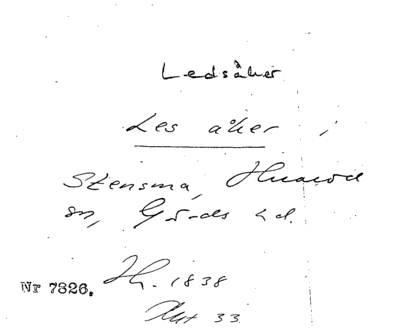 Ledsåker
Les åker
Stensma, Huarod
sn, Gärds hd.
Nr 7326. Sk. 1838
Akt 33